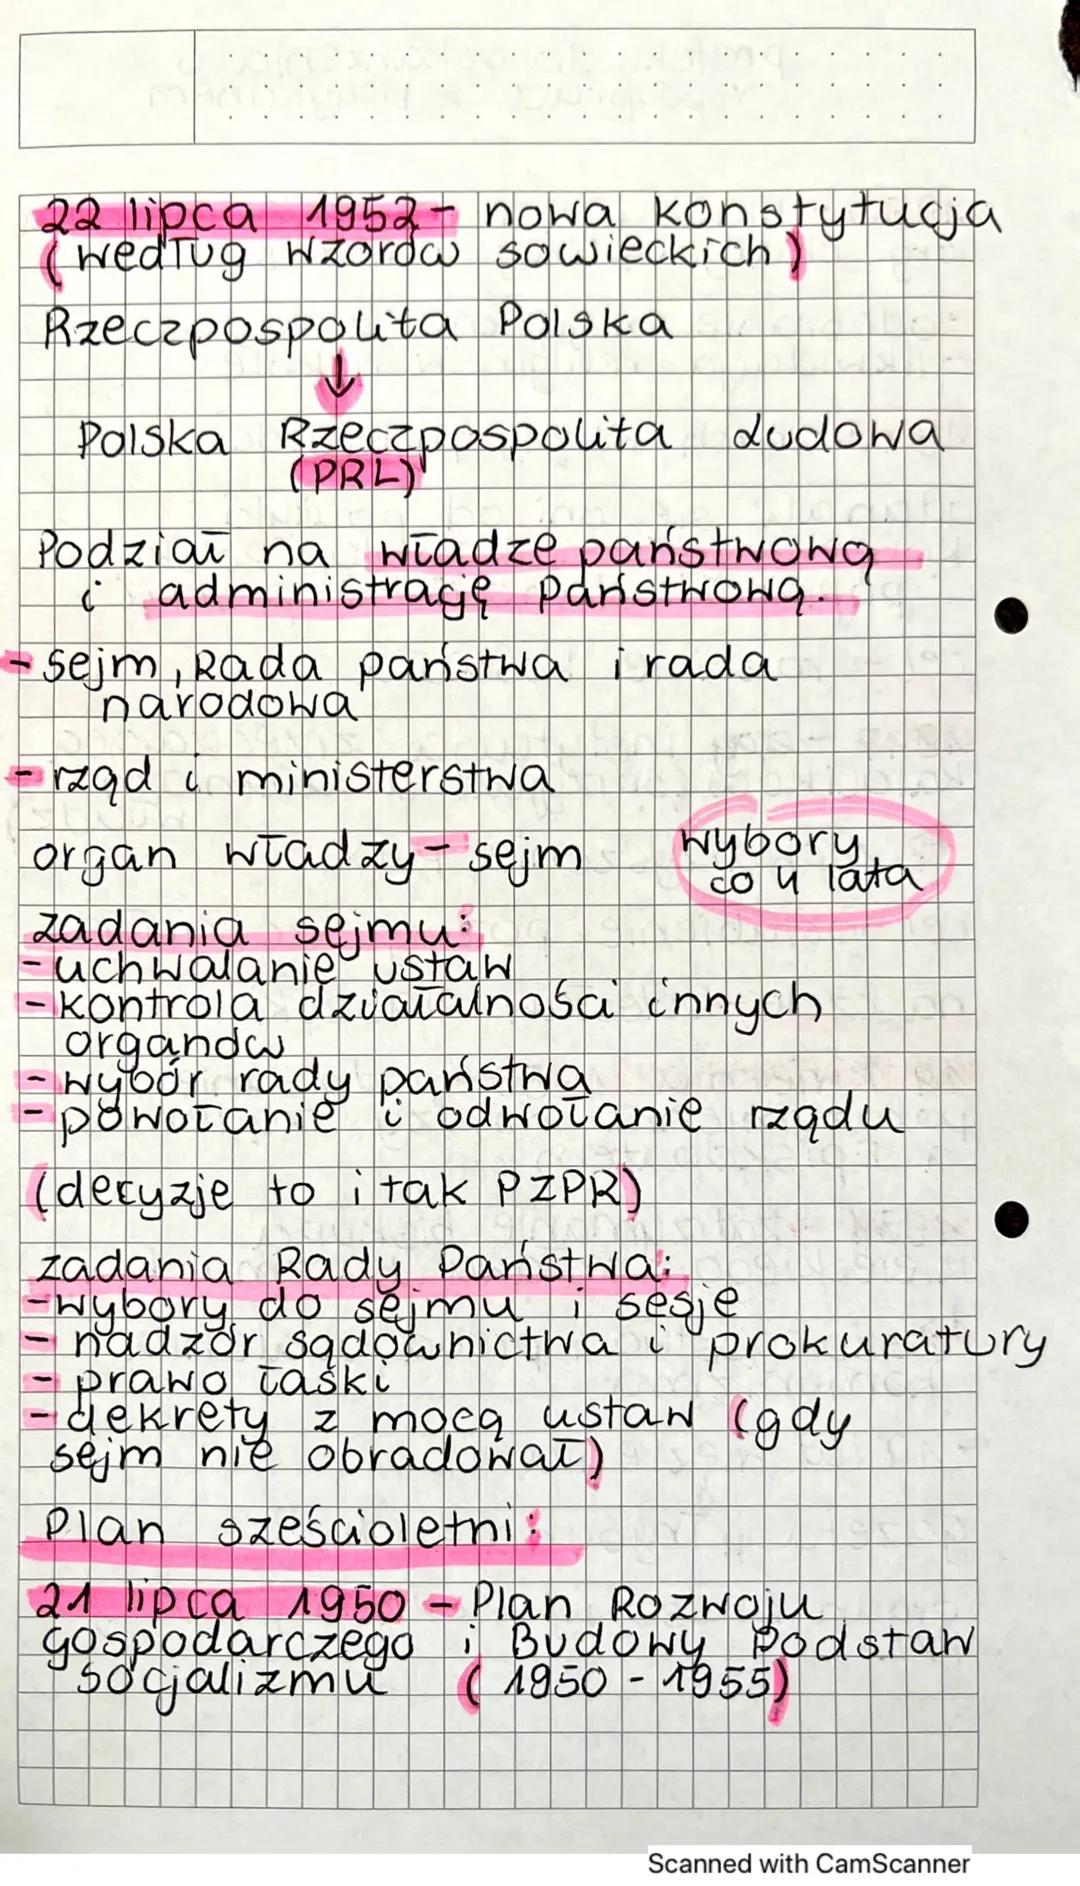 22 lipca 1952 - nowa konstytucja
(według wzorów sowieckich)
Rzeczpospolita Polska
↓
Polska Rzeczpospolita Ludowa
(PRL)
Podział na władze państwową
i administrację państwową.
- sejm, Rada państwa i rada
narodowa
- rząd i ministerstwa
organ władzy - sejm
wybory
co 4 lata
zadania sejmu:
- uchwalanie ustaw
- kontrola działalności innych
organów
- wybór rady państwa
- powołanie i odwołanie rządu
(decyzje to i tak PZPR)
zadania Rady Państwa:
- wybory do sejmu i sesje
- nadzór sądownictwa i prokuratury
- prawo łaski
- dekrety z mocą ustaw (gdy
sejm nie obradował)
Plan sześcioletni:
21 lipca 1950 - Plan Rozwoju
gospodarczego i Budowy Podstaw
socjalizmu (1950 - 1955)
Scanned with CamScanner